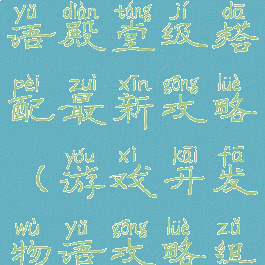 yǔ diàn táng jí dā
语殿堂级搭
pèi zuì xīn gōng lüè
配最新攻略
yóu xì kāi fā
（游戏开发
wù yǔ gōng lüè zǔ
物语攻略组